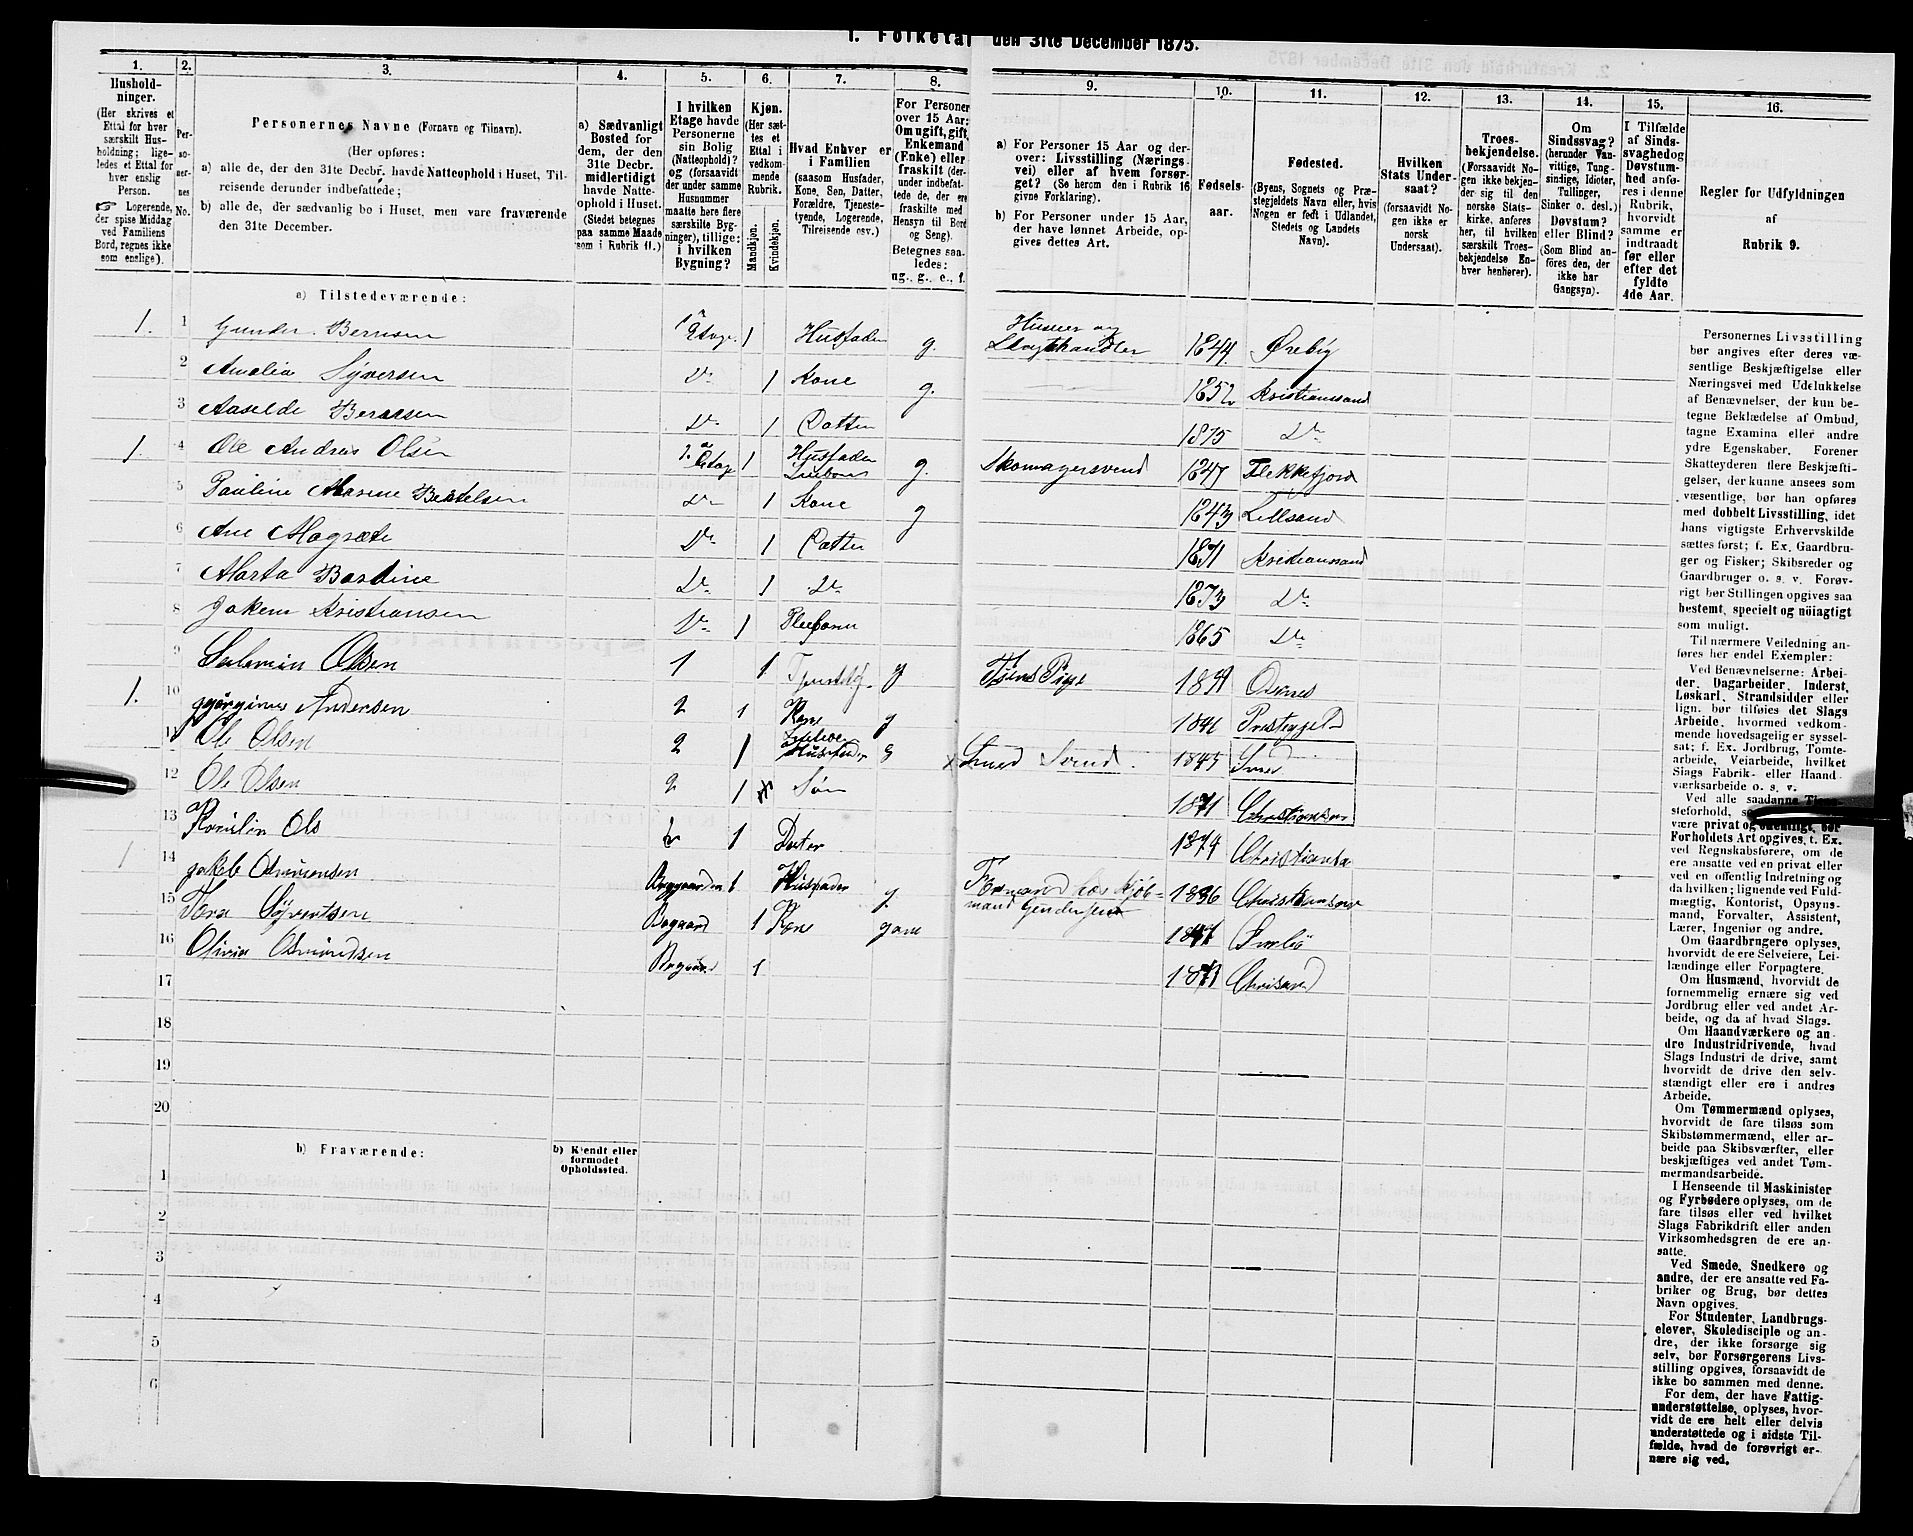 I. Folketal den 31te December 1875.
1. 2. 3. 4. 5. 6. 7. 8. 9. 10. 11. 12. 13. 14. 15. 16.
Hushold-
ninger.
(Her skrives et
Ettal for hver
særskilt Hus-
holdning; lige-
ledes et Ettal for
hver enslig
Person.
☞ Logerende,
der spise Middag
ved Familiens
Bord, regnes ikke
som enslige).
Per-
so-
ner-
nes
No.
Personernes Navne (Fornavn og Tilnavn).
(Her opføres:
a) alle de, der den 31te Decbr. havde Natteophold i Huset, Til-
reisende derunder indbefattede;
b) alle de, der sædvanlig bo i Huset, men vare fraværende
den 31te December.
a) Sædvanligt
Bosted for
dem, der den
31te Decbr.
midlertidigt
havde Natte-
ophold i Huset.
(Stedet betegnes
paa samme Maade
som i Rubrik 11.)
I hvilken
Etage havde
Personerne
sin Bolig
(Natteophold)?
og (forsaavidt
der under samme
Husnummer
maatte høre flere
særskilte Byg-
ninger), tillige:
i hvilken
Bygning?
Kjøn.
(Her sæt-
tes et
Ettal i
vedkom-
mende
Rubrik.
Mandkjøn.
Kvindekjøn.
Hvad Enhver er
i Familien
(saasom Husfader,
Kone, Søn, Datter,
Forældre, Tjeneste-
tyende, Logerende,
Tilreisende osv.)
For Personer
over 15 Aar:
Om ugift, gift,
Enkemand
(Enke) eller
fraskilt (der-
under indbefat-
tede de, der ere
fraskilte med
Hensyn til Bord
og Seng).
Betegnes saa-
ledes:
ug., g., e., f.
a) For Personer 15 Aar og der-
over: Livsstilling (Nærings-
vei) eller af hvem forsør-
get? (Se herom den i Rubrik 16
givne Forklaring).
b) For Personer under 15 Aar,
der have lønnet Arbeide, op-
gives dettes Art.
Fødsels-
aar.
Fødested.
(Byens, Sognets og Præ-
stegjeldets Navn eller, hvis
Nogen er født i Udlandet,
Stedets og Landets
Navn).
Hvilken
Stats Under-
saat?
(forsaavidt No-
gen ikke er
norsk
Undersaat).
Troes-
bekjendelse.
(Forsaavidt No-
gen ikke bekjen-
der sig til den
norske Stats-
kirke, anføres
her, til hvilken
særskilt Troes-
bekjendelse En-
hver henhører).
Om
Sindssvag?
(herunder Van-
vittige, Tung-
sindige, Idioter,
Tullinger,
Sinker o. desl.)
Døvstum?
eller Blind?
(Som Blind an-
føres den, der
ikke har
Gangsyn).
I Tilfælde
af Sinds-
svaghed og
Døvstum-
hed anfø-
res i denne
Rubrik,
hvorvidt
samme er
indtraadt
før eller
efter det
fyldte
4de Aar.
Regler for Udfyldningen
af
Rubrik 9.
a) Tilstedeværende:
1. 1 Gunder Berntsen 1ste Etage. 1 Husfader g. Huseier og 1844 Ørebig
2 Amalia Syversen Do 1 Kone g. 1852 Kristianssand
3 Aaselde Berntsen Do 1 Datter 1875 Do
1. 4 Ole Andreas Olsen Etage 1 Husfader g. Skomagersvend 1847 Flekkefjord
5 Pauline Marene Bertelsen Do 1 Kone g 1843 Lillsand
6 Ane Magrete Do 1 Datter 1871 Kristianssand
7 Marta Bardine Do 1 Do 1873 Do
8 Jokem Kristiansen Do 1 1865 Do
9 Olsen 1 1 g Tjens Pige
1. 10 Andersen 2 1 Kone g
11 Ole Olsen 2 1 Husfader g x Smed Svend.
12 Ole Olsen 2 1 Søn 1871
13 Ols 1 Dater 1874
1 14 1 Husfader g. 1836
15 Tora Syvertsen 1 Kone
16 Olivia Osmundsen 1 1873 Chrisand
17
18
19
20
b) Fraværende:
b) Kjendt eller
formodet
Opholdssted.
1
2
3
4
5
6
Personernes Livsstilling
bør angives efter deres væ-
sentlige Beskjæftigelse eller
Næringsvei med Udelukkelse
af Benævnelser, der kun be-
tegne Beklædelse af Ombud,
tagne Examina eller andre
ydre Egenskaber. Forener
Skatteyderen flere Beskjæfti-
gelser, der kunne ansees som
væsentlige, bør han opføres
med dobbelt Livsstilling, idet
hans vigtigste Erhvervskilde
sættes først; f. Ex. Gaardbru-
ger og Fisker; Skibsreder og
Gaardbruger o. s. v. Forøv-
rigt bør Stillingen opgives saa
bestemt, specielt og nöiagtigt
som muligt.
Til nærmere Veiledning an-
føres her endel Exempler:
Ved Benævnelserne: Arbei-
der, Dagarbeider, Inderst,
Løskarl, Strandsidder eller
lign. bør tilføies det Slags
Arbeide, hvormed vedkom-
mende hovedsagelig er syssel-
sat; f. Ex. Jordbrug, Tomte-
arbeide, Veiarbeide, hvilket
Slags Fabrik- eller Haand-
værksarbeide o. s. v.
Ved alle saadanne Tjene-
steforhold,
være privat og offentligt, bør
Forholdets Art opgives, t. Ex.
ved Regnskabsførere, om de
ere ansatte ved en privat eller
ved en offentlig Indretning og
da hvilken; lignende ved Fuld-
mægtig, Kontorist, Opsyns-
mand, Forvalter, Assistent,
Lærer, Ingeniør og andre.
Om Gaardbrugere oplyses,
hvorvidt de ere Selveiere, Lei-
lændinge eller Forpagtere.
Om Husmænd, hvorvidt de
fornemmelig ernære sig ved
Jordbrug eller ved andet Ar-
beide, og da af hvad Slags.
Om Haandværkere og an-
dre Industridrivende, hvad
Slags Industri de drive, samt
hvorvidt de drive den selv-
stændigt eller ere i andres
Arbeide.
Om Tømmermænd oplyses,
hvorvidt de fare tilsøs som
Skibstømmermænd, eller ar-
beide paa Skibsværfter, eller
beskjæftiges ved andet Tøm-
mermandsarbeide.
I Henseende til Maskinister
og Fyrbødere oplyses, om de
fare tilsøs eller ved hvilket
Slags Fabrikdrift eller anden
Virksomhedsgren de ere an-
satte.
Ved Smede, Snedkere og
andre, der ere ansatte ved Fa-
briker og Brug, bør dettes
Navn opgives.
For Studenter, Landbrugs-
elever, Skoledisciple og an-
dre, der ikke forsørge sig
selv, bør Forsørgerens Livs-
stilling opgives, forsaavidt de
ikke bo sammen med denne.
For dem, der have Fattig-
understøttelse, oplyses, hvor-
vidt de ere helt eller delvis
understøttede og i sidste Til-
fælde, hvad de forøvrigt er-
nære sig ved.